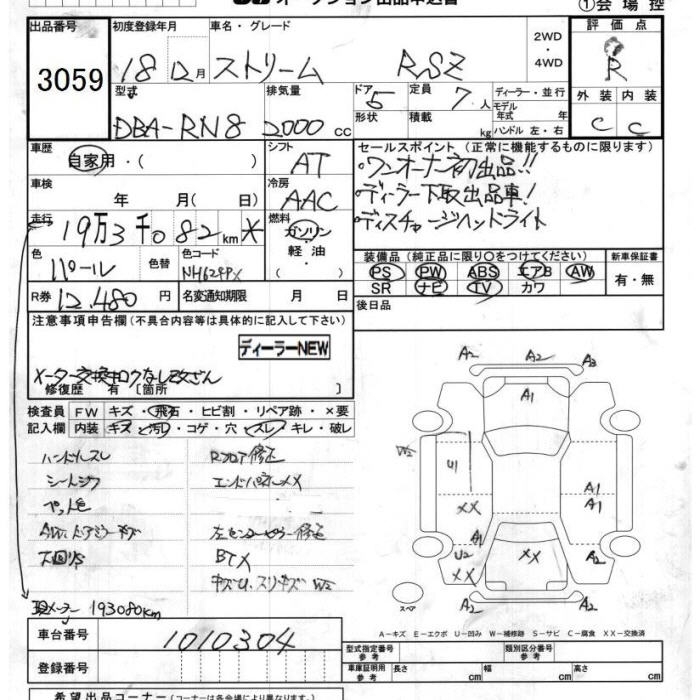 オークション出品申込書
①会場控
出品番号
3059
初度登録年月
車名・グレード
18 12月 ストリーム RSZ
2WD
・
4WD
評価点
R
型式
DBA-RN8
排気量
2000 cc
ドア 5
形状
定員 7人
積載 kg
ディーラー・並行
モデル
年式 年
ハンドル 左・右
外装 内装
C C
車歴
自家用・( )
シフト
AT
セールスポイント (正常に機能するものに限ります)
・ワンオーナー初出品!!
・ディーラー下取出品車!
・ディスチャージヘッドライト
車検
年 月( 日)
冷房
AAC
走行
19万3千082km*
燃料
ガソリン
・
軽油
( )
色
パール
色替
色コード
NH624PX
装備品 (純正品に限り○をつけてください)
新車保証書
PS PW ABS エアB AW
SR ナビ TV カワ
有・無
R券
12,480円
名変通知期限 月 日
後日品
注意事項申告欄 (不具合内容等は具体的に記入して下さい)
ディーラーNEW
メーター交換キロクなし改ざん
修復歴 有 [箇所 ]
検査員 FW キズ・飛石・ヒビ割・リペア跡・×要
記入欄 内装 キズ・汚れ・コゲ・穴・スレ・キレ・破レ
ハンドルスレ
Rフロア修正
シートシワ
エンドパネルXX
AW、ドアミラーキズ
左センターピラー修正
下回りS
BTX
現メーター 193080km
A2 A2 A3
A1
W2
U1
XX
A1
A1
A1
U2
XX
XX
A2
A2 A2
スペア
A-キズ E-エクボ U-凹み W-補修跡 S-サビ C-腐食 XX-交換済
車台番号
1010304
登録番号
型式指定番号
参考
類別区分番号
参考
車庫証明用
参考
長さ cm 幅 cm 高さ cm
希望出品コーナー (コーナーは各会場により異なります)